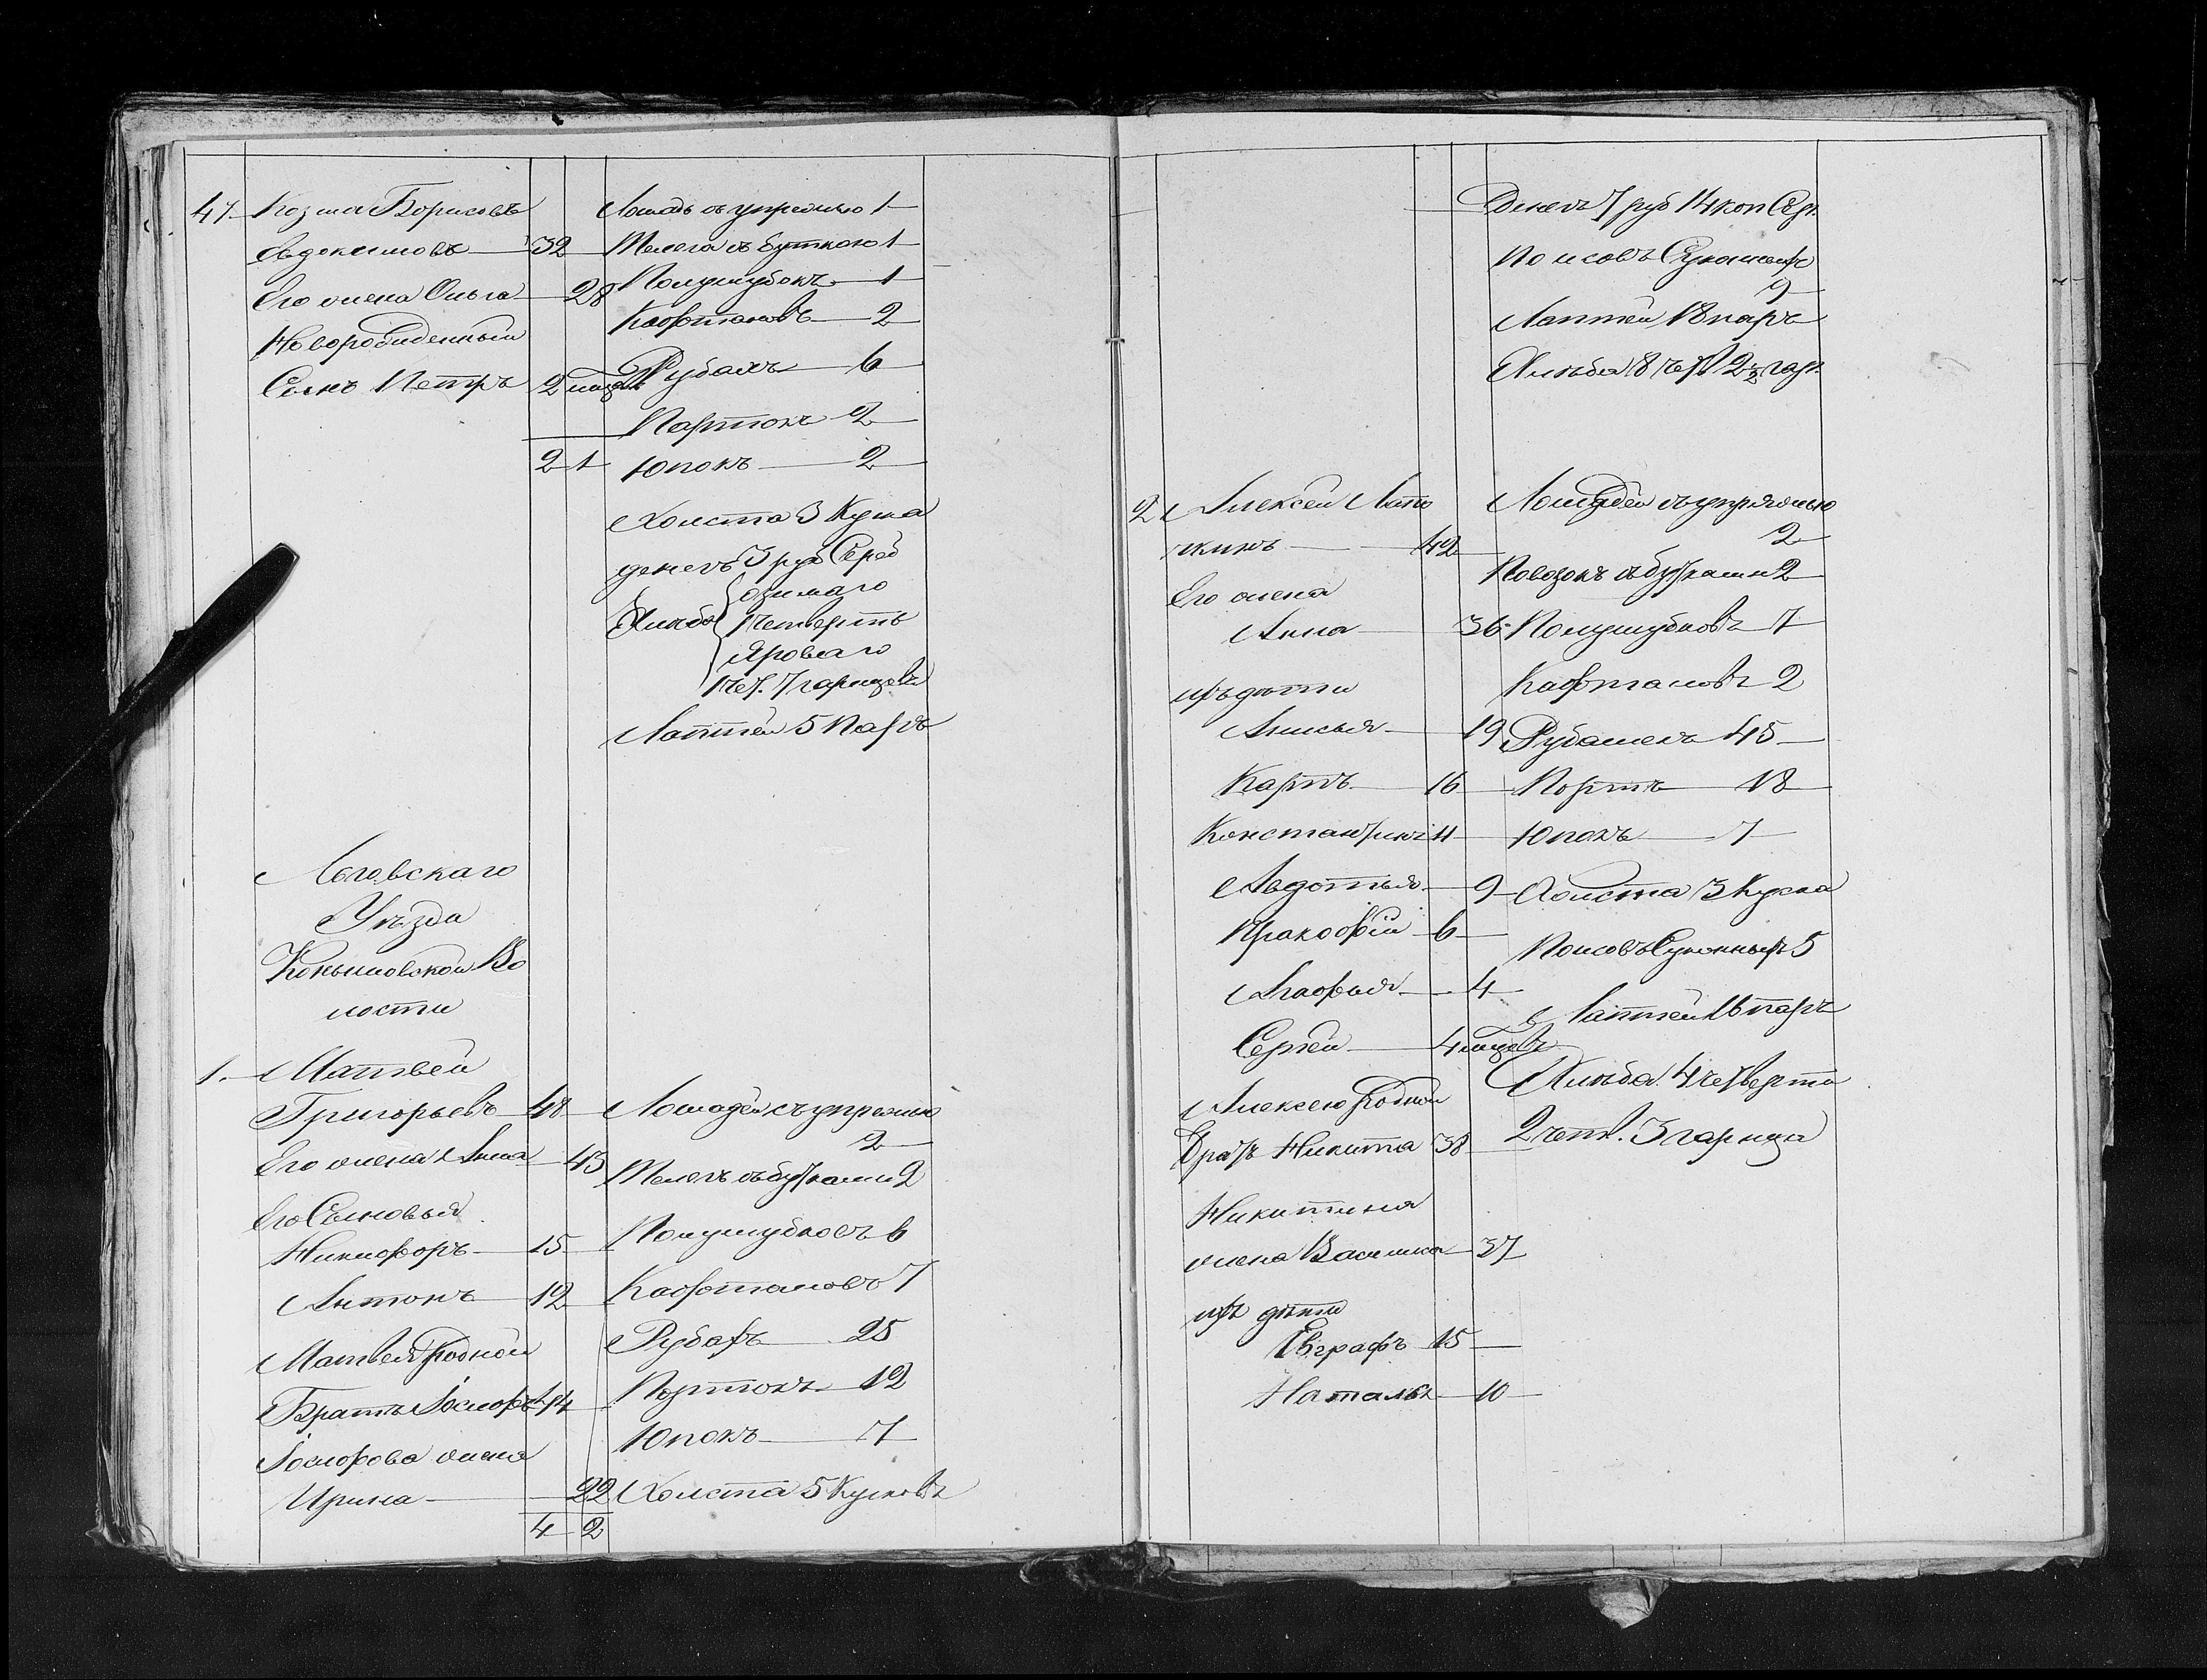 47 Козма Борисовъ
Авдокимовъ 32
Его жена Ольга 28
Новорожденный
Сынъ Петръ 2 мѣсяц
2 1
Лошадь съ упряжью 1
Телега съ буткою 1
Полушубокъ 1
Кафтановъ 2
Рубахъ 6
Партокъ 2
Юпокъ 2
Холста 3 Куска
денегъ 3 руб Сереб
озимаго
Хлѣба 1 четверть
Яроваго
1 чет. 7 гарнцевъ
Лаптей 5 Паръ
Льговскаго
Уѣзда
Во
лости
1. Матвей
Григорьевъ 48
Его жена Анна 45
Его Сыновья
Никифоръ 15
Антонъ 12
Матвея Родной
Братъ 44
жена
Ирина 22
4 2
Лошадей съ упряжью
2
Телегъ съ бутками 2
Полушубковъ 6
Кафтановъ 7
Рубахъ 25
Портокъ 12
Юпокъ 7
Холста 5 Кусковъ
Денегъ 7 руб 14 коп Сер.
Поясовъ Суконныхъ
9
Лаптей 18 паръ
Хлѣба 8 чет 2½ гар.
2 Алексей
42
Его жена
Анна 36
ихъ дѣти
Анисья 19
Карпъ 16
Константинъ 11
Авдотья 9
Пракофій 6
Агафья 4
Сергей 4 мѣсяцевъ
Алексею Родной
Братъ Никита 38
Никитина
жена Василиса 37
ихъ дѣти
Евграфъ 15
Наталья 10
Лошадей съ упряжью
2
Повозокъ съ бутками 2
Полушубковъ 7
Кафтановъ 2
Рубашекъ 45
Портъ 18
Юпокъ 7
Холста 3 Куска
Поясовъ Суконныхъ 5
Лаптей 16 паръ
Хлѣба 4 четверти
2 четв. 3 гарнца